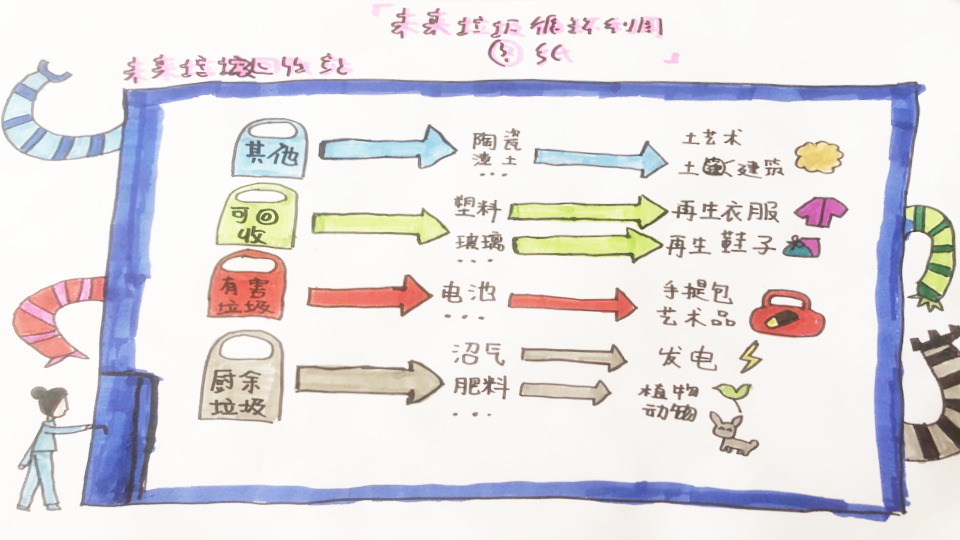 「未来垃圾循环利用
」
未来垃圾回收站
其他
陶瓷
渣土
...
土艺术
土建筑
可回
收
塑料
玻璃
...
再生衣服
再生鞋子
有害
垃圾
电池
...
手提包
艺术品
厨余
垃圾
沼气
肥料
...
发电
植物
动物